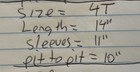 Size = 4T
Length = 14"
Sleeves = 11"
pit to pit = 10"